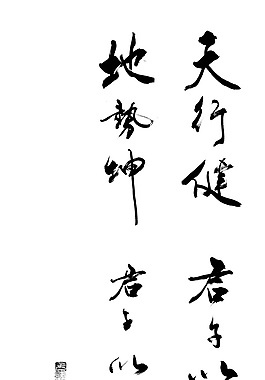 天行健 君子以
地勢坤 君子以